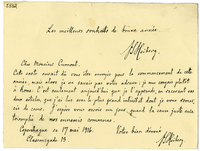 Les meilleurs souhaits de bonne année.
Cher Monsieur Cumont.
Cette carte aurait dû vous être envoyée pour le commencement de cette
année, mais alors je ne savais pas votre adresse; je vous croyais plutôt
à Rome. C'est seulement aujourd'hui que je l'apprends, en recevant vos
deux articles, que j'ai lus avec le plus grand intérêt dont je vous remercie
de cœur. J'espère vous revoir un jour, quand la cause juste aura
triomphé de nos ennemis communs.
Copenhague ce 17 mai 1916.
Votre bien dévoué